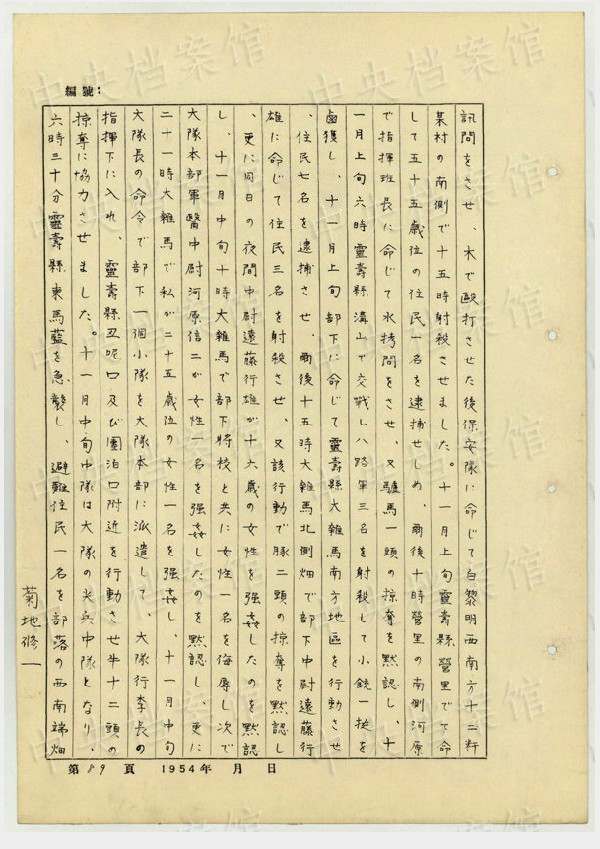 編號：
訊問をさせ、木で毆打させた後保安隊に命じて白黎明西南方十二粁
某村の南側で十五時射殺させました。十一月上旬靈壽縣營里で下命
して五十五歳位の住民一名を逮捕せしめ、爾後十時營里の南側河原
で指揮班長に命じて水拷問をさせ、又驢馬一頭の掠奪を黙認し、十
一月上旬六時靈壽縣溝山で交戰し八路軍三名を射殺して小銃一挺を
鹵獲し、十一月上旬部下に命じて靈壽縣大雜馬南方地區を行動させ
、住民七名を逮捕させ、爾後十五時大雜馬北側畑で部下中尉遠藤行
雄に命じて住民三名を射殺させ、又該行動で豚二頭の掠奪を黙認し
、更に同日の夜間中尉遠藤行雄が十六歳の女性を強姦したのを黙認
し、十一月中旬十時大雜馬で部下將校と共に女性一名を侮辱し次で
大隊本部軍醫中尉河原信二が女性一名を強姦したのを黙認し、更に
二十一時大雜馬で私が二十五歳位の女性一名を強姦し、十一月中旬
大隊長の命令で部下一個小隊を大隊本部に派遣して、大隊行李長の
指揮下に入れ、靈壽縣丑呢口及び團泊口附近を行動させ牛十二頭の
掠奪に協力させました。十一月中旬中隊は大隊の尖兵中隊となり、
六時三十分靈壽縣東馬藍を急襲し、避難住民一名を部落の西南端畑
菊地修一
第89頁 1954年 月 日
中央档案馆